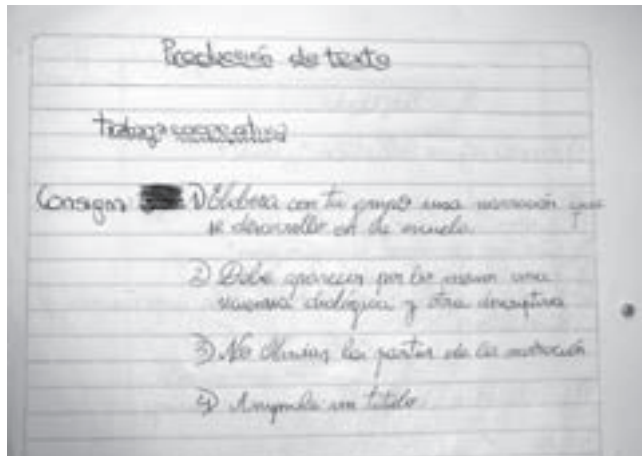 Producción de texto
Trabajo cooperativo
Consigna 1) Elabora con tu grupo una narración que
se desarrolle en la escuela.
2) Debe aparecer por lo menos una
secuencia dialógica y otra descriptiva
3) No olvidar las partes de la narración
4) un título